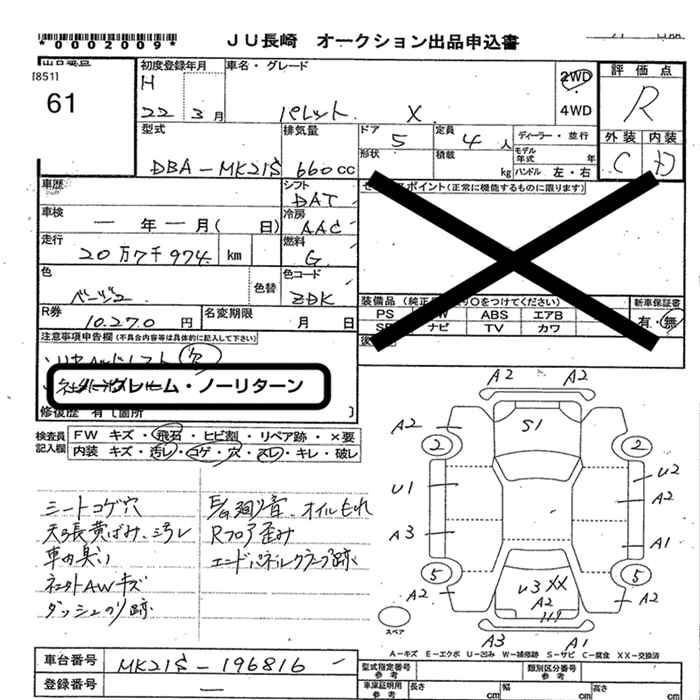 *0002009*
JU長崎 オークション出品申込書
[851]
61
初度登録年月
H
22 3月
車名・グレード
パレット X
2WD
4WD
評価点
R
外装 内装
C D
型式
DBA-MK21S
排気量
660cc
ドア 5
形状
定員 4人
積載 kg
ディーラー・並行
モデル年式 年
ハンドル 左・右
車歴
シフト DAT
車検
ー 年 ー 月( 日)
冷房 AAC
走行
20万7千974 km
燃料 G
色
ベージュ
色替
色コード ZDK
R券
10.270円
名変期限 月 日
ポイント(正常に機能するものに限ります)
装備品
○をつけてください)
PS ABS エアB
ナビ TV カワ
新車保証書
有・無
注意事項申告欄(不具合内容等は具体的に記入して下さい)
クレーム・ノーリターン
修復歴 有[箇所 ]
検査員記入欄
FW キズ・飛石・ヒビ割・リペア跡・×要
内装 キズ・汚レ・コゲ・穴・スレ・キレ・破レ
シートコゲ穴
天張黄ばみ、汚レ
車内臭い
ネロ外AWキズ
ダッシュのり跡
E/G廻り音、オイルもれ
Rフロア歪み
エンドパネルクランプ跡
A2 A2
A2 S1
2 2
U1 U2
A2
A3 A1
5 5
A2 U3 XX A2
A2
スペア
A3 A1
A-キズ E-エクボ U-凹み W-補修跡 S-サビ C-腐食 XX-交換済
車台番号 MK21S-196816
登録番号 ー
型式指定番号 参考
類別区分番号 参考
車庫証明用 参考
長さ cm 幅 cm 高さ cm